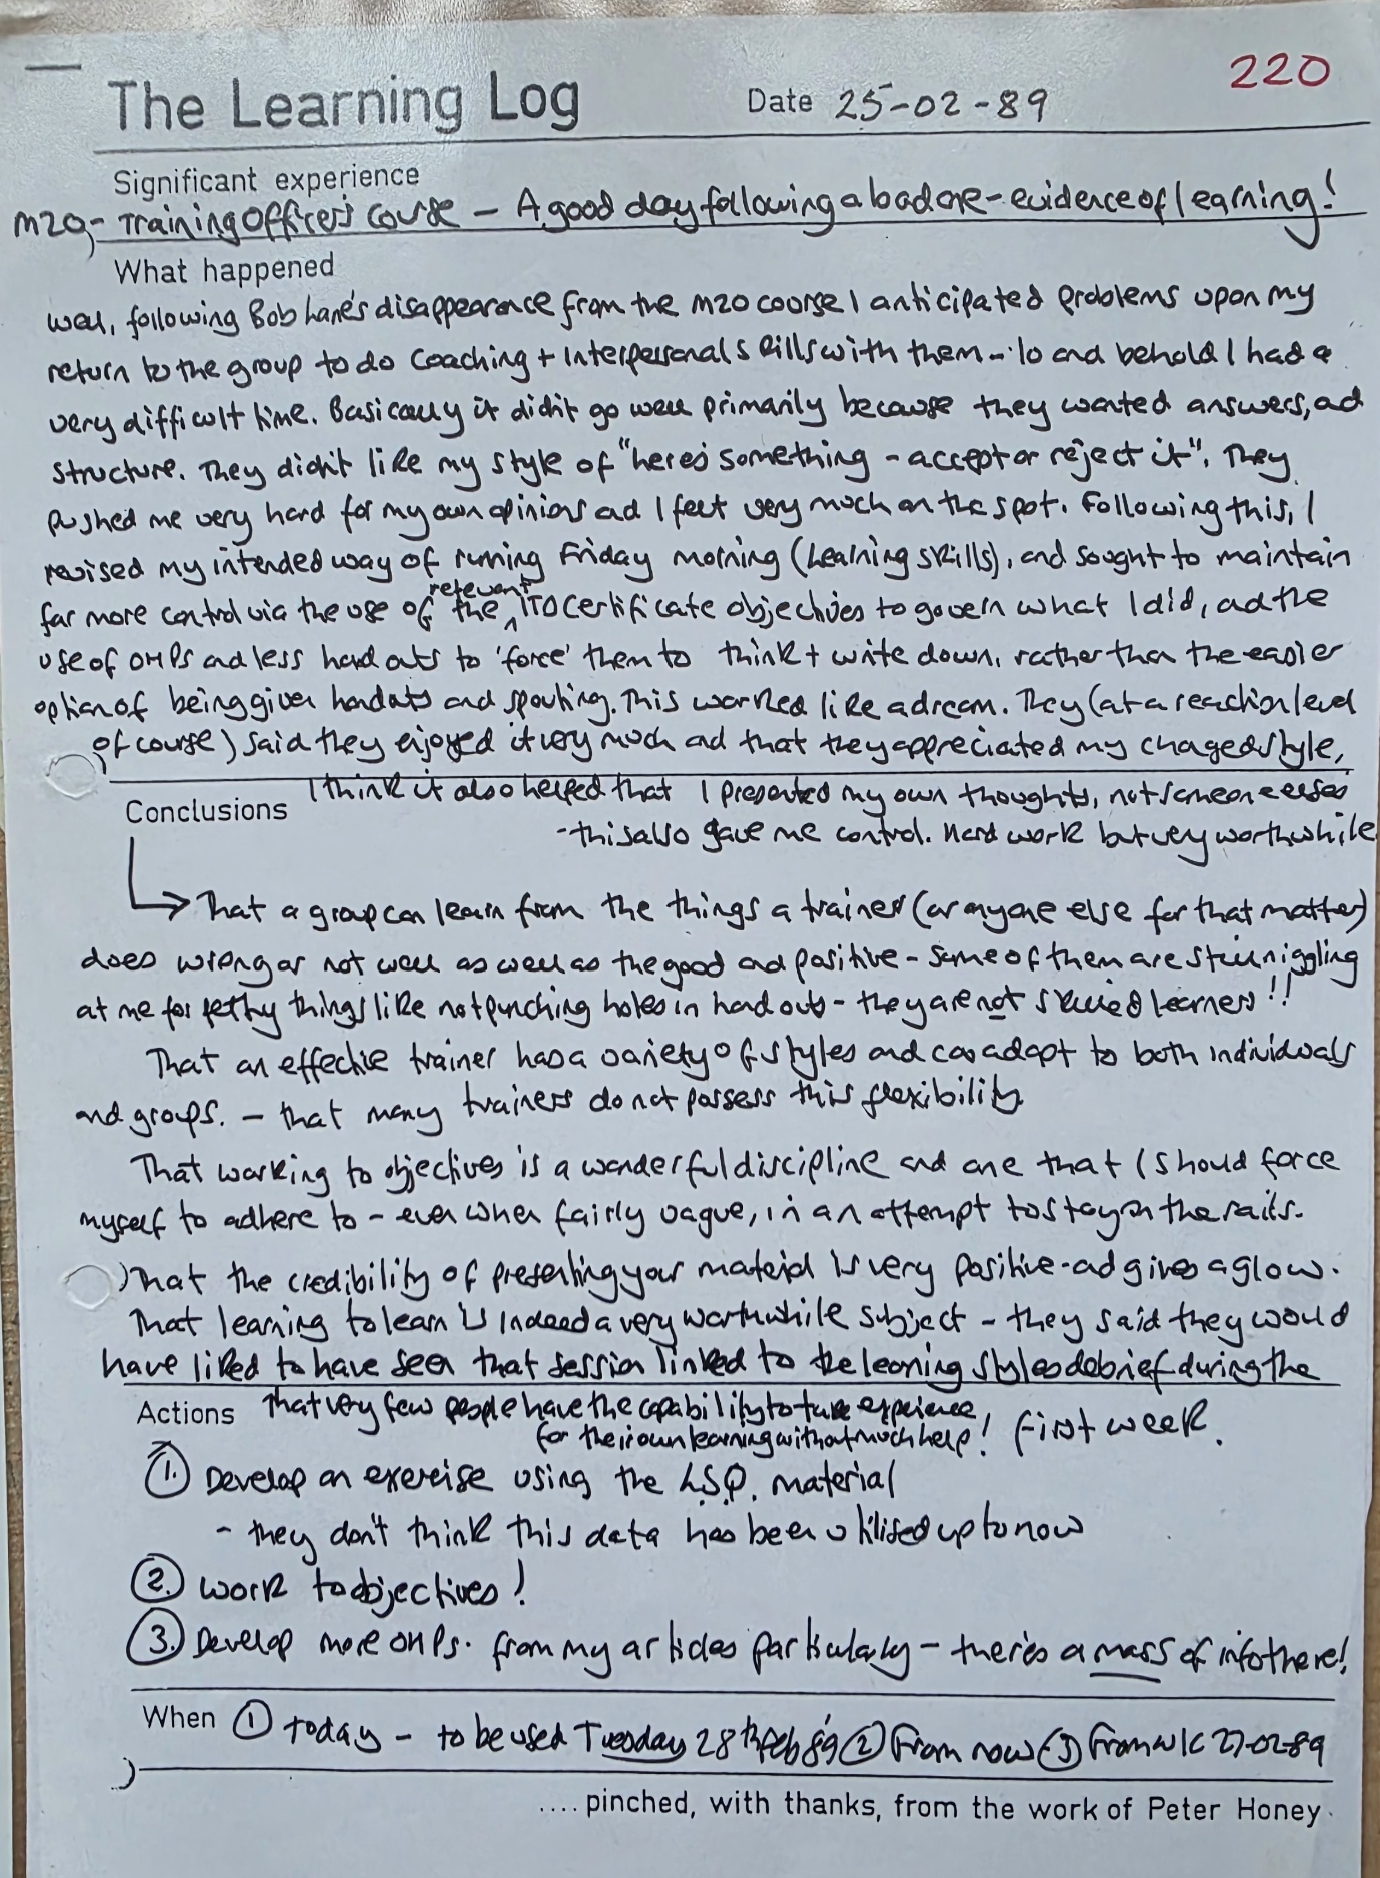 220
The Learning Log Date 25-02-89
Significant experience
M20, - Training Officers Course - A good day following a bad one - evidence of learning!
What happened
Well, following Bob Lane's disappearance from the M20 course I anticipated problems upon my
return to the group to do Coaching + Interpersonal Skills with them - lo and behold I had a
very difficult time. Basically it didn't go well primarily because they wanted answers, and
structure. They didn't like my style of "here's something - accept or reject it". They
pushed me very hard for my own opinions and I felt very much on the spot. Following this, I
revised my intended way of running Friday morning (Learning Skills), and sought to maintain
relevant
far more control via the use of the ^ ITD Certificate objectives to govern what I did, and the
use of OHPs and less handouts to 'force' them to think + write down, rather than the easier
option of being given handouts and spouting. This worked like a dream. They (at a reaction level
of course) said they enjoyed it very much and that they appreciated my changed style,
I think it also helped that I presented my own thoughts, not someone elses
Conclusions
- this also gave me control. Hard work but very worthwhile
→ That a group can learn from the things a trainer (or anyone else for that matter)
does wrong or not well as well as the good and positive - some of them are still niggling
at me for petty things like not punching holes in handouts - they are not skilled learners!!
That an effective trainer has a variety of styles and can adapt to both individuals
and groups. - that many trainers do not possess this flexibility
That working to objectives is a wonderful discipline and one that I should force
myself to adhere to - even when fairly vague, in an attempt to stay on the rails.
That the credibility of presenting your material is very positive - and gives a glow.
That learning to learn is indeed a very worthwhile subject - they said they would
have liked to have seen that session linked to the learning styles debrief during the
first week.
That very few people have the capability to use experience
for their own learning without much help!
Actions
1. Develop an exercise using the L.S.Q. material
- they don't think this data has been utilised up to now
2. Work to objectives!
3. Develop more OHPs. from my articles particularly - there's a mass of info there!
When 1 Today - to be used Tuesday 28th Feb 89 2 From now 3 From w/c 27-02-89
.... pinched, with thanks, from the work of Peter Honey.